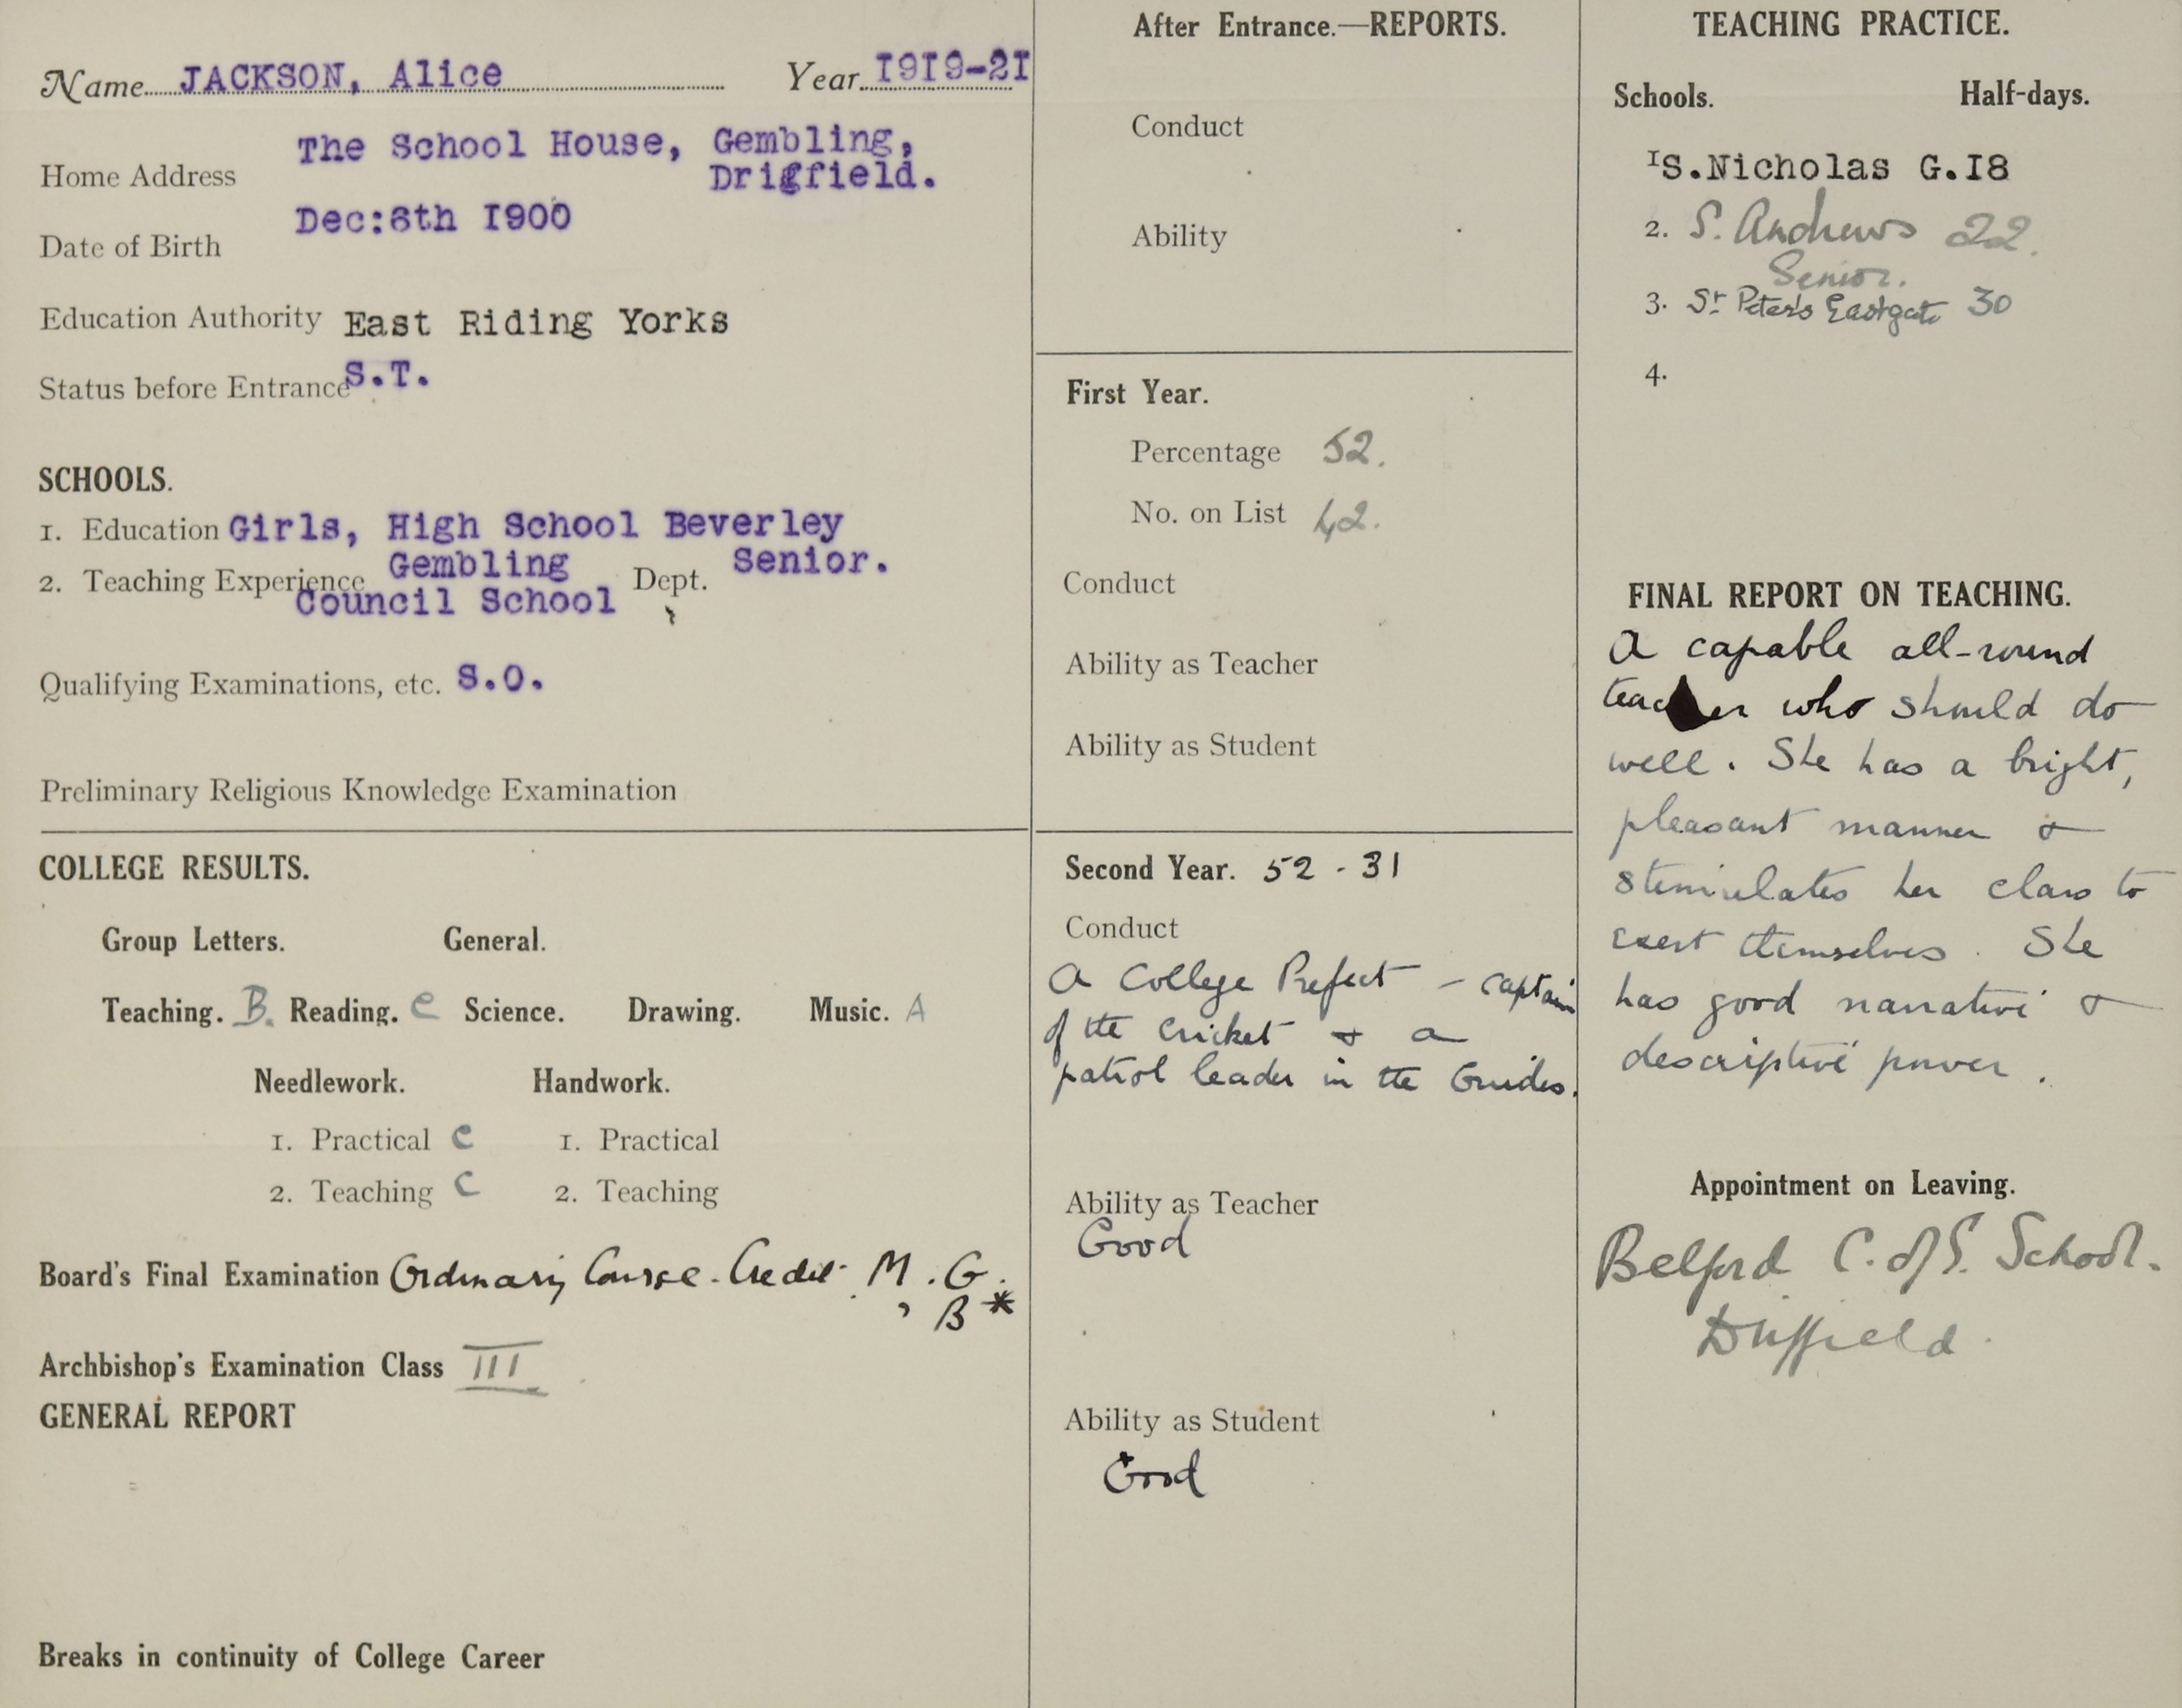 Name JACKSON, Alice Year 1919-21
Home Address The School House, Gembling,
Drigfield.
Date of Birth Dec:6th 1900
Education Authority East Riding Yorks
Status before Entrance S.T.
SCHOOLS.
1. Education Girls, High School Beverley
2. Teaching Experience Gembling Dept. Senior.
Council School
Qualifying Examinations, etc. S.O.
Preliminary Religious Knowledge Examination
COLLEGE RESULTS.
Group Letters. General.
Teaching. B. Reading. C Science. Drawing. Music. A
Needlework. Handwork.
1. Practical C 1. Practical
2. Teaching C 2. Teaching
Board's Final Examination Ordinary Course - Credit M. G.
" B *
Archbishop's Examination Class III
GENERAL REPORT
Breaks in continuity of College Career
After Entrance.—REPORTS.
Conduct
Ability
First Year.
Percentage 52.
No. on List 42.
Conduct
Ability as Teacher
Ability as Student
Second Year. 52 - 31
Conduct
A College Prefect - Captain
of the Cricket & a
patrol leader in the Guides.
Ability as Teacher
Good
Ability as Student
Good
TEACHING PRACTICE.
Schools. Half-days.
1 S.Nicholas G.18
2. S. Andrews 22.
Senior.
3. St Peter's Eastgate 30
4.
FINAL REPORT ON TEACHING.
A capable all-round
teacher who should do
well. She has a bright,
pleasant manner &
stimulates her class to
exert themselves. She
has good narrative &
descriptive power.
Appointment on Leaving.
Belford C. of E. School.
Duffield.